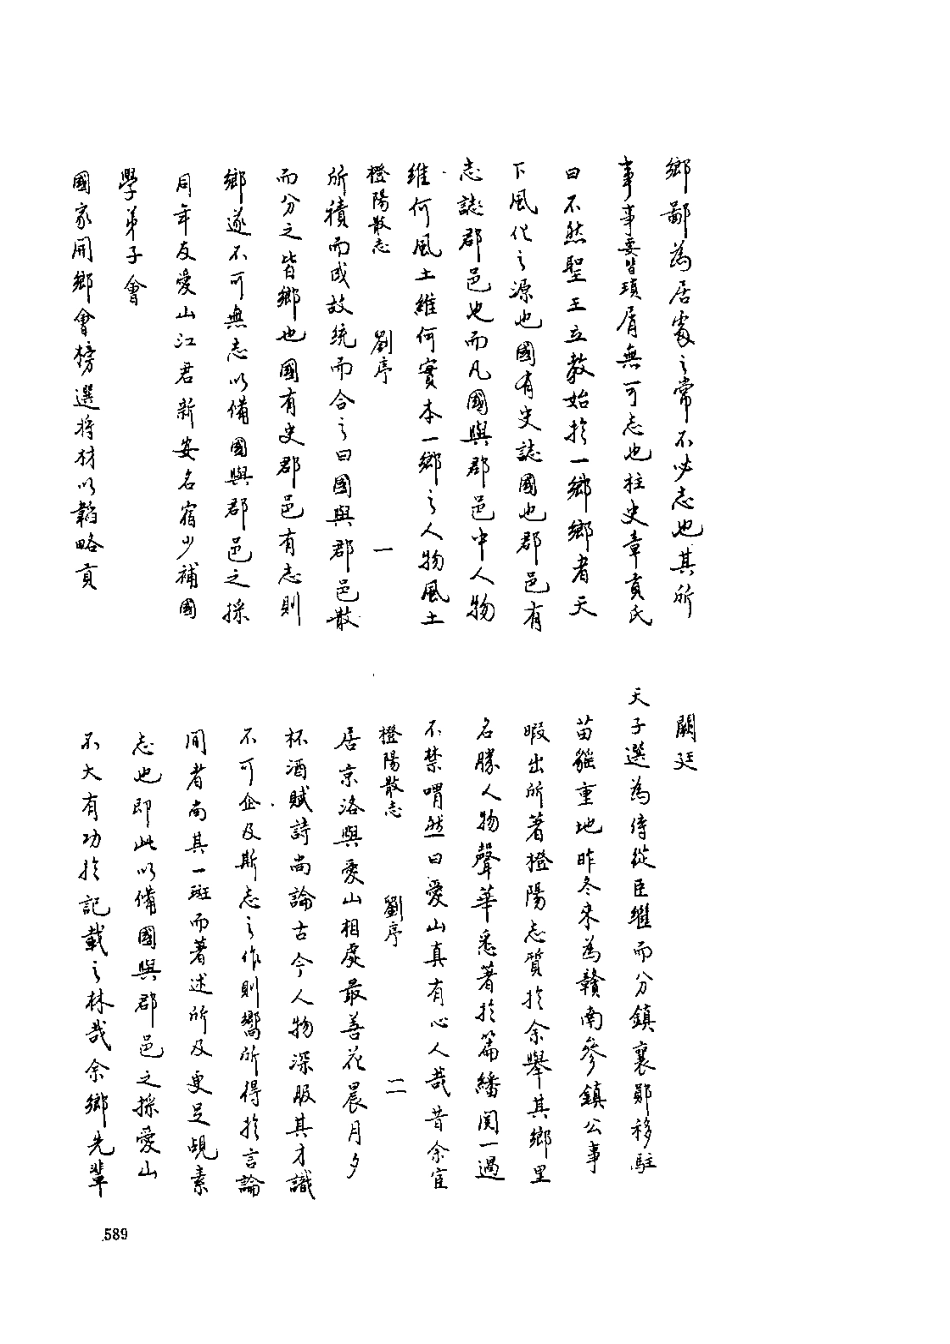 鄉鄙為居處之常不必志也其所
事事要皆瑣屑無可志也柱史章貢氏
曰不然聖王立教始於一鄉鄉者天
下風化之源也國有史誌國也郡邑有
志誌郡邑也而凡國與郡邑中人物
維何風土維何實本一鄉之人物風土
橙陽散志 劉序 一
所積而成故統而合之曰國與郡邑散
而分之皆鄉也國有史郡邑有志則
鄉遂不可無志以備國與郡邑之採
同年友愛山江君新安名宿少補國
學弟子會
國家開鄉會榜選將材以韜略貢
闕廷
天子選為侍從臣繼而分鎮襄鄖移駐
苗疆重地昨冬來為贛南參鎮公事
暇出所著橙陽志質於余舉其鄉里
名勝人物聲華悉著於篇繙閱一過
不禁喟然曰愛山真有心人哉昔余宦
橙陽散志 劉序 二
居京洛與愛山相處最善花晨月夕
杯酒賦詩尚論古今人物深服其才識
不可企及斯志之作則嚮所得於言論
間者尚其一斑而著述所及更足覘素
志也即此以備國與郡邑之採愛山
不大有功於記載之林哉余鄉先輩
589